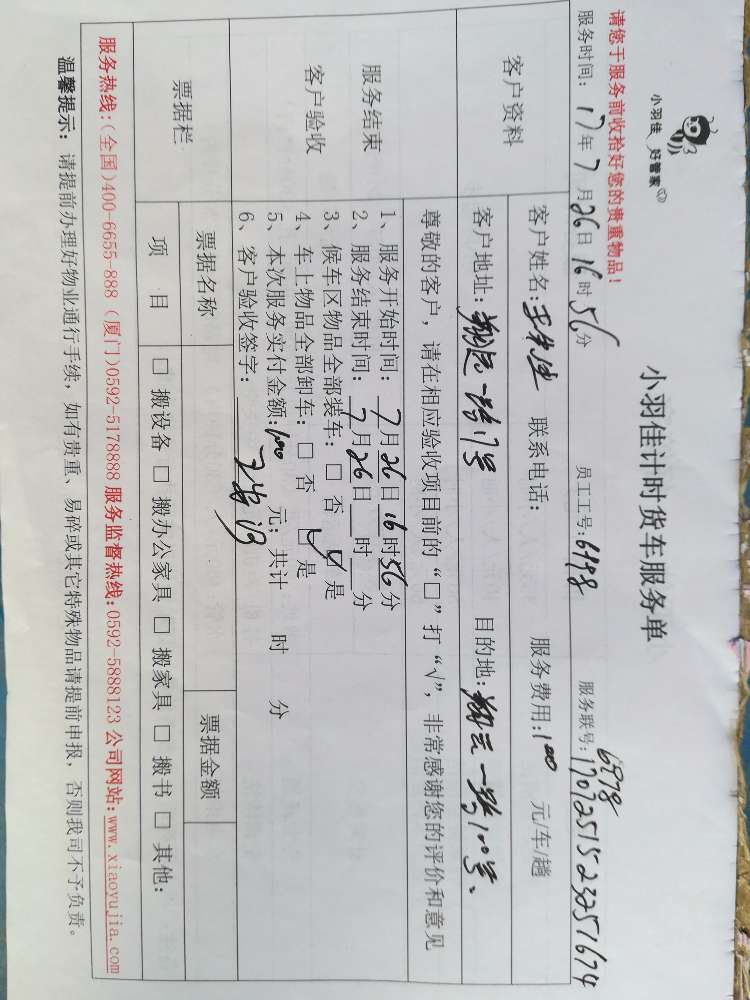 小羽佳 好管家
小羽佳计时货车服务单
请您于服务前收拾好您的贵重物品！
服务时间：17年7月26日16时56分 员工工号：6498 服务联号：1707251523251674
6978
客户资料
客户姓名：王先生 联系电话： 服务费用：100 元/车/趟
客户地址：翔远一路17号 目的地：翔云一路100号、
服务结束
客户验收
尊敬的客户，请在相应验收项目前的“□”打“√”，非常感谢您的评价和意见
1、服务开始时间：7月26日16时56分
2、服务结束时间：7月26日__时__分
3、候车区物品全部装车：□ 否 ☑ 是
4、车上物品全部卸车：□ 否 ☑ 是
5、本次服务实付金额：100 元；共计 时 分
6、客户验收签字：
票据栏
票据名称 票据金额
项 目 □ 搬设备 □ 搬办公家具 □ 搬家具 □ 搬书 □ 其他：
服务热线：(全国)400-6655-888 (厦门)0592-5178888 服务监督热线：0592-5888123 公司网站：www.xiaoyujia.com
温馨提示：请提前办理好物业通行手续，如有贵重、易碎或其它特殊物品请提前申报，否则我司不予负责。